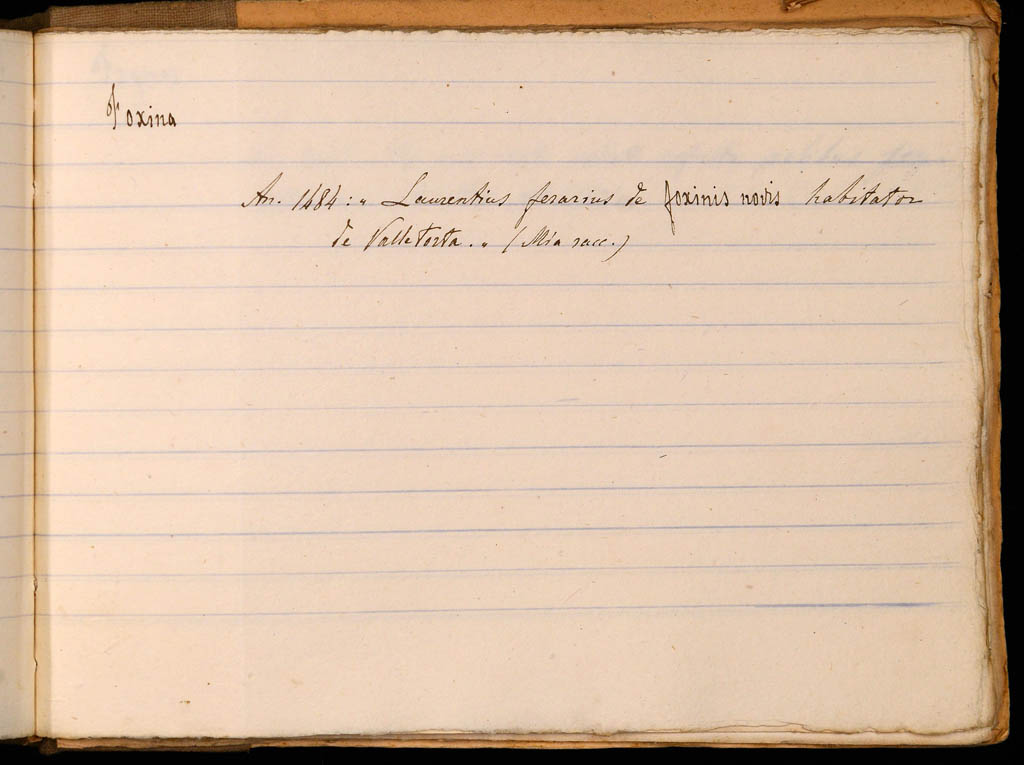 Foxina
An. 1484: „ Laurentius ferarius de foxinis novis habitator
de Valle torta. „ (Mia racc.)